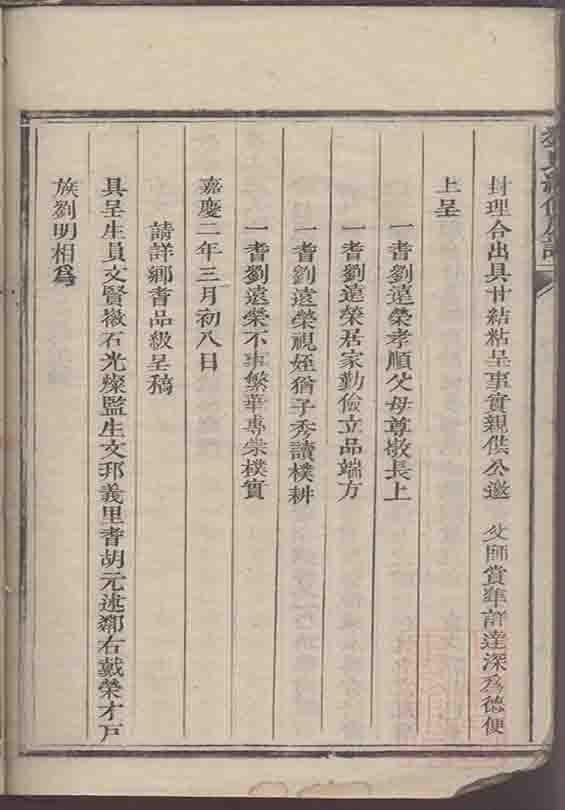 封理合出具甘結粘呈事實親供公邀　父師賞準詳達深為德便
上呈
一耆劉遠榮孝順父母尊敬長上
一耆劉遠榮居家勤儉立品端方
一耆劉遠榮視姪猶子秀讀樸耕
一耆劉遠榮不事繁華專崇樸實
嘉慶二年三月初八日
請詳鄉耆品級呈稿
具呈生員文賢徵石光燦監生文邦義里耆胡元述鄰右戴榮才戶
族劉明相為